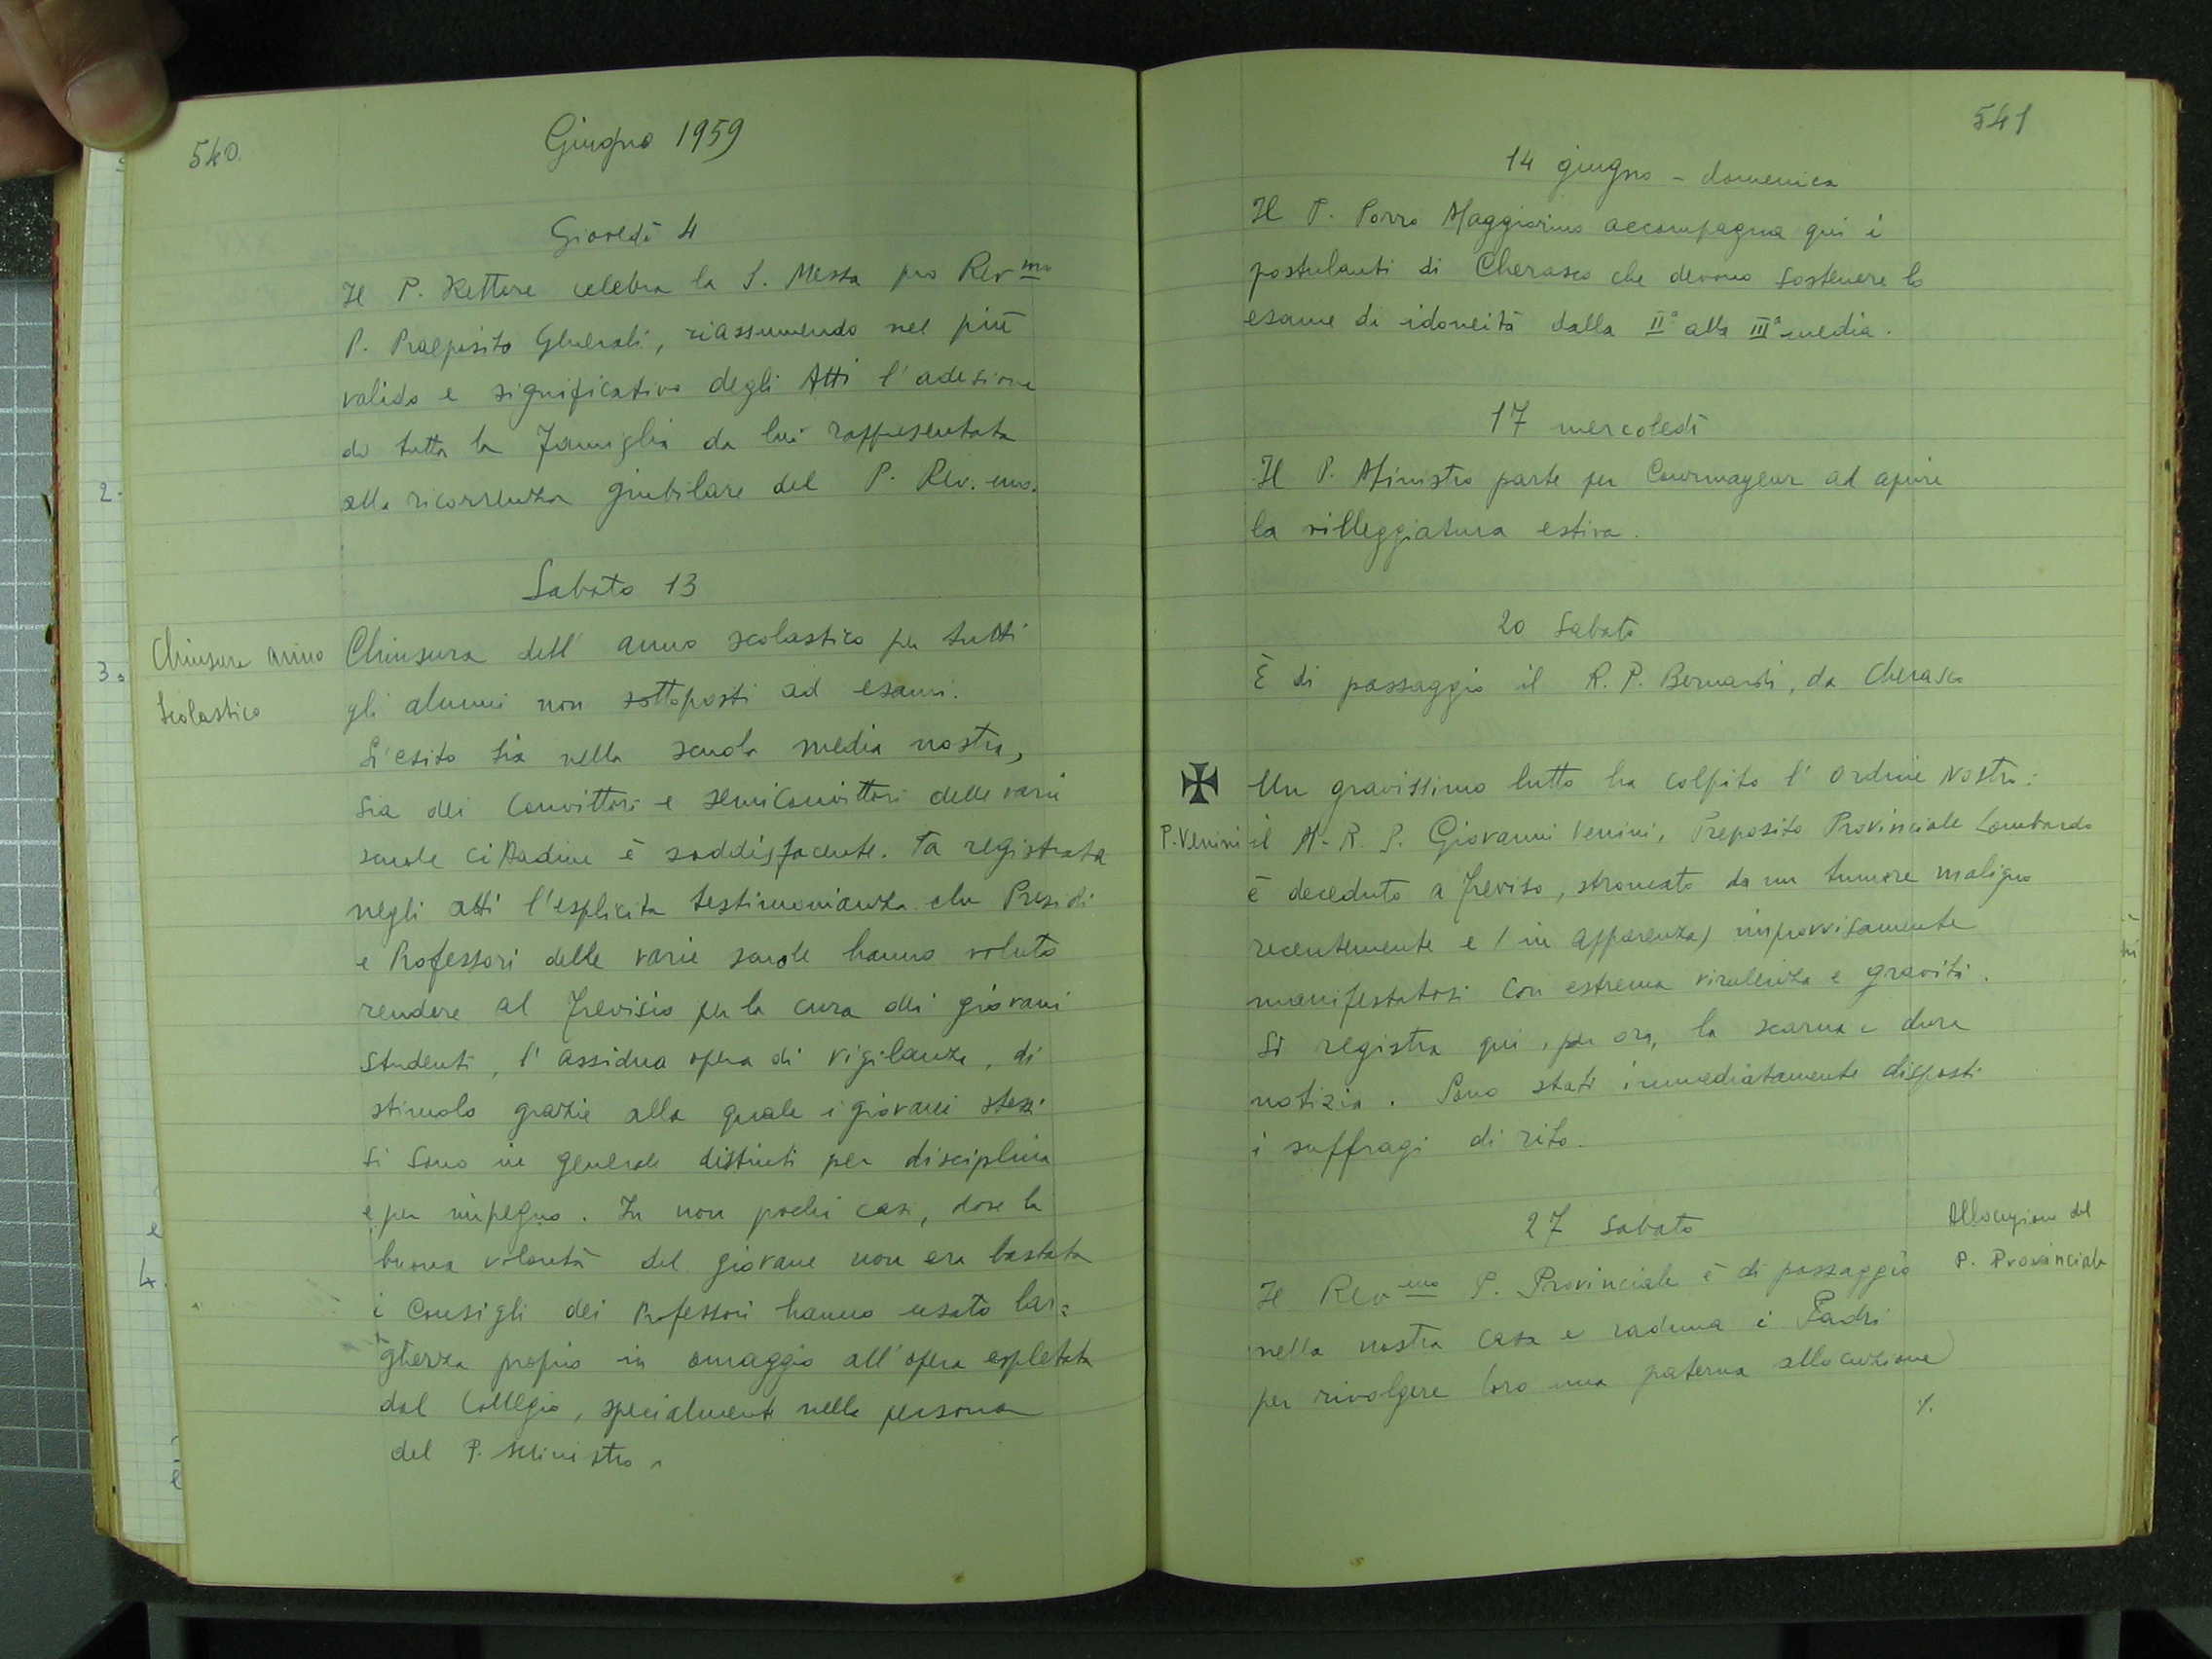 540.
Giugno 1959
Giovedì 4
Il P. Rettore celebra la S. Messa pro Rev mo
P. Praeposito Generali, riassumendo nel più
valido e significativo degli Atti l'adesione
di tutta la Famiglia da lui rappresentata
alla ricorrenza giubilare del P. Rev.mo.
Sabato 13
Chiusura anno
Scolastico
Chiusura dell' anno scolastico per tutti
gli alunni non sottoposti ad esami.
L'esito sia nella scuola media nostra,
sia dei Convittori e semiconvittori delle varie
scuole cittadine è soddisfacente. Va registrata
negli atti l'esplicita testimonianza che Presidi
e Professori delle varie scuole hanno voluto
rendere al Trevisio per la cura dei giovani
studenti, l'assidua opera di vigilanza, di
stimolo grazie alla quale i giovani stessi
si sono in generale distinti per disciplina
e per impegno. In non pochi casi, dove la
buona volontà del giovane non era bastata
i Consigli dei Professori hanno usato lar=
ghezza proprio in omaggio all'opera espletata
dal Collegio, specialmente nella persona
del P. Ministro.
541
14 giugno - domenica
Il P. Porro Maggiorino accompagna qui i
postulanti di Cherasco che devono sostenere lo
esame di idoneità dalla IIª alla IIIª media.
17 mercoledì
Il P. Ministro parte per Courmayeur ad aprire
la villeggiatura estiva.
20 Sabato
È di passaggio il R. P. Bernardi, da Cherasco
Un gravissimo lutto ha colpito l'Ordine Nostro:
P. Venini il M. R. P. Giovanni Venini, Preposito Provinciale Lombardo
è deceduto a Treviso, stroncato da un tumore maligno
recentemente e (in apparenza) improvvisamente
manifestatosi con estrema virulenza e gravità.
Si registra qui, per ora, la scarna e dura
notizia. Sono stati immediatamente disposti
i suffragi di rito.
27 Sabato
Allocuzione del
P. Provinciale
Il Rev mo P. Provinciale è di passaggio
nella nostra casa e raduna i Padri
per rivolgere loro una paterna allocuzione
./.